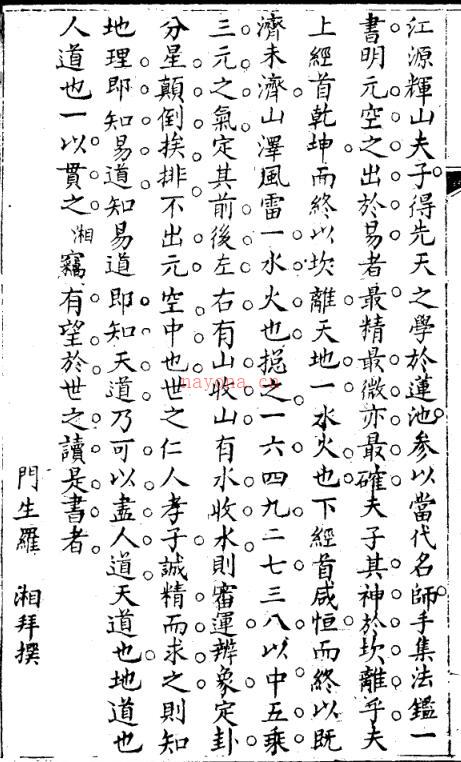 江源輝山夫子得先天之學於蓮池參以當代名師手集法鑑一
書明元空之出於易者最精最微亦最確夫子其神於坎離乎夫
上經首乾坤而終以坎離天地一水火也下經首咸恒而終以既
濟未濟山澤風雷一水火也揔之一六四九二七三八以中五乘
三元之氣定其前後左右有山收山有水收水則審運辨象定卦
分星顛倒挨排不出元空中也世之仁人孝子誠精而求之則知
地理即知易道知易道即知天道乃可以盡人道天道也地道也
人道也一以貫之湘竊有望於世之讀是書者
門生羅湘拜撰
nayona.cn